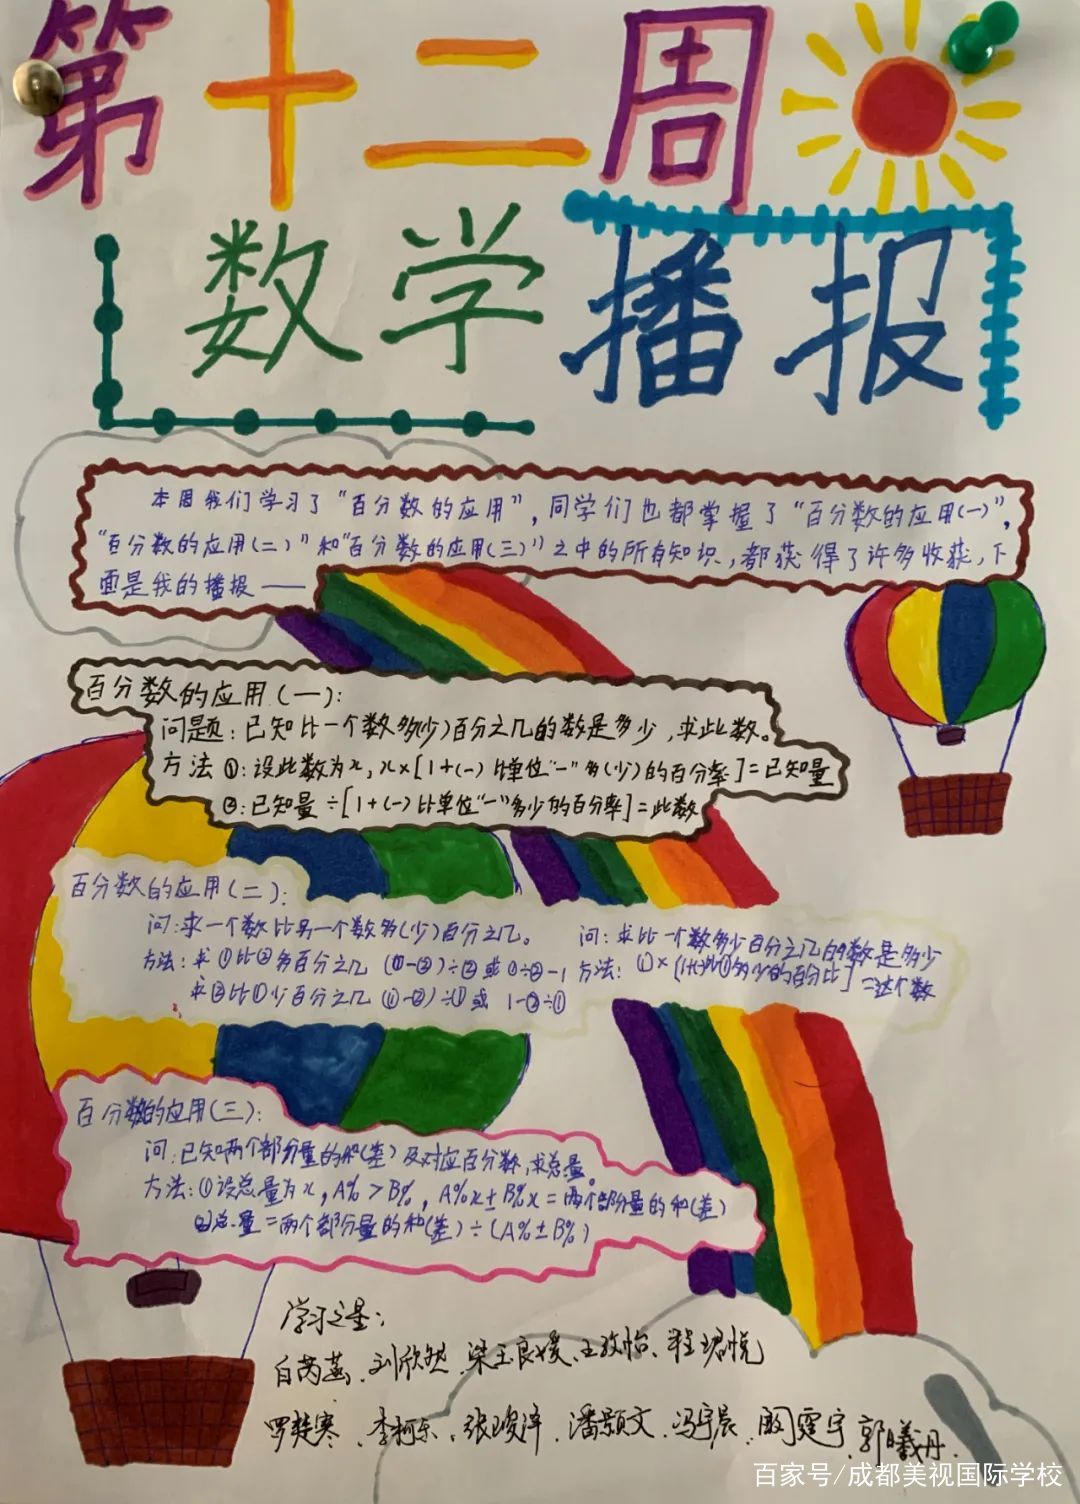 第十二周
数学播报
本周我们学习了“百分数的应用”,同学们也都掌握了“百分数的应用(一)”,
“百分数的应用(二)”和“百分数的应用(三)”之中的所有知识,都获得了许多收获,下
面是我的播报——
百分数的应用(一):
问题:已知比一个数多(少)百分之几的数是多少,求此数。
方法①:设此数为x, x×[1+(-)比单位“一”多(少)的百分率]=已知量
②:已知量÷[1+(-)比单位“一”多少的百分率]=此数
百分数的应用(二):
问:求一个数比另一个数多(少)百分之几。
方法:求①比②多百分之几 (①-②)÷②或①÷②-1
求②比①少百分之几 (①-②)÷①或 1-②÷①
问:求比一个数多少百分之几的数是多少
方法:①×[1+(-)比①多少的百分比]=这个数
百分数的应用(三):
问:已知两个部分量的和(差)及对应百分数,求总量。
方法:①设总量为x,A%>B%,A%x±B%x=两个部分量的和(差)
②总量=两个部分量的和(差)÷(A%±B%)
学习之星:
白芮菡、刘欣然、梁玉良媛、王玫怡、程珺悦
罗楚寒、李柯乐、张峻泽、潘颢文、冯宇晨、阚霆宇、郭曦丹、
百家号/成都美视国际学校